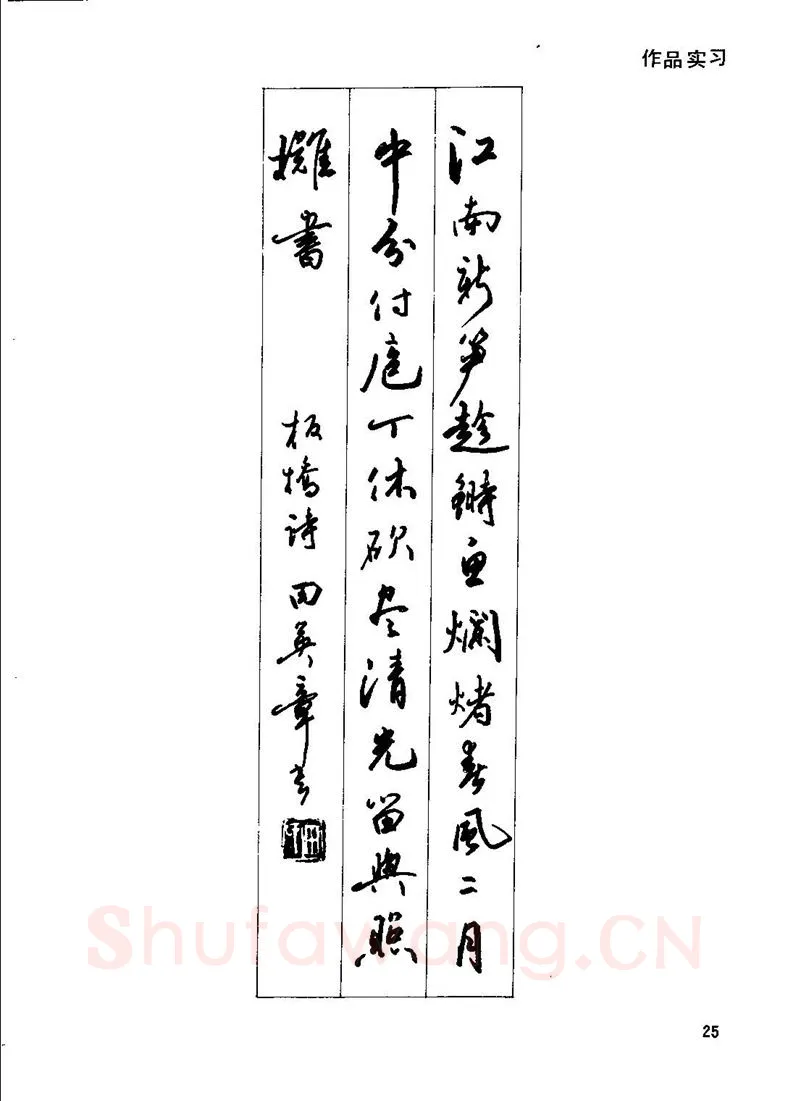 作品实习
江南新笋趁鰣魚爛煮春風二月
中分付庖丁休砍尽清光留與照
攤書 板橋詩 田英章书
Shufawang.CN
25